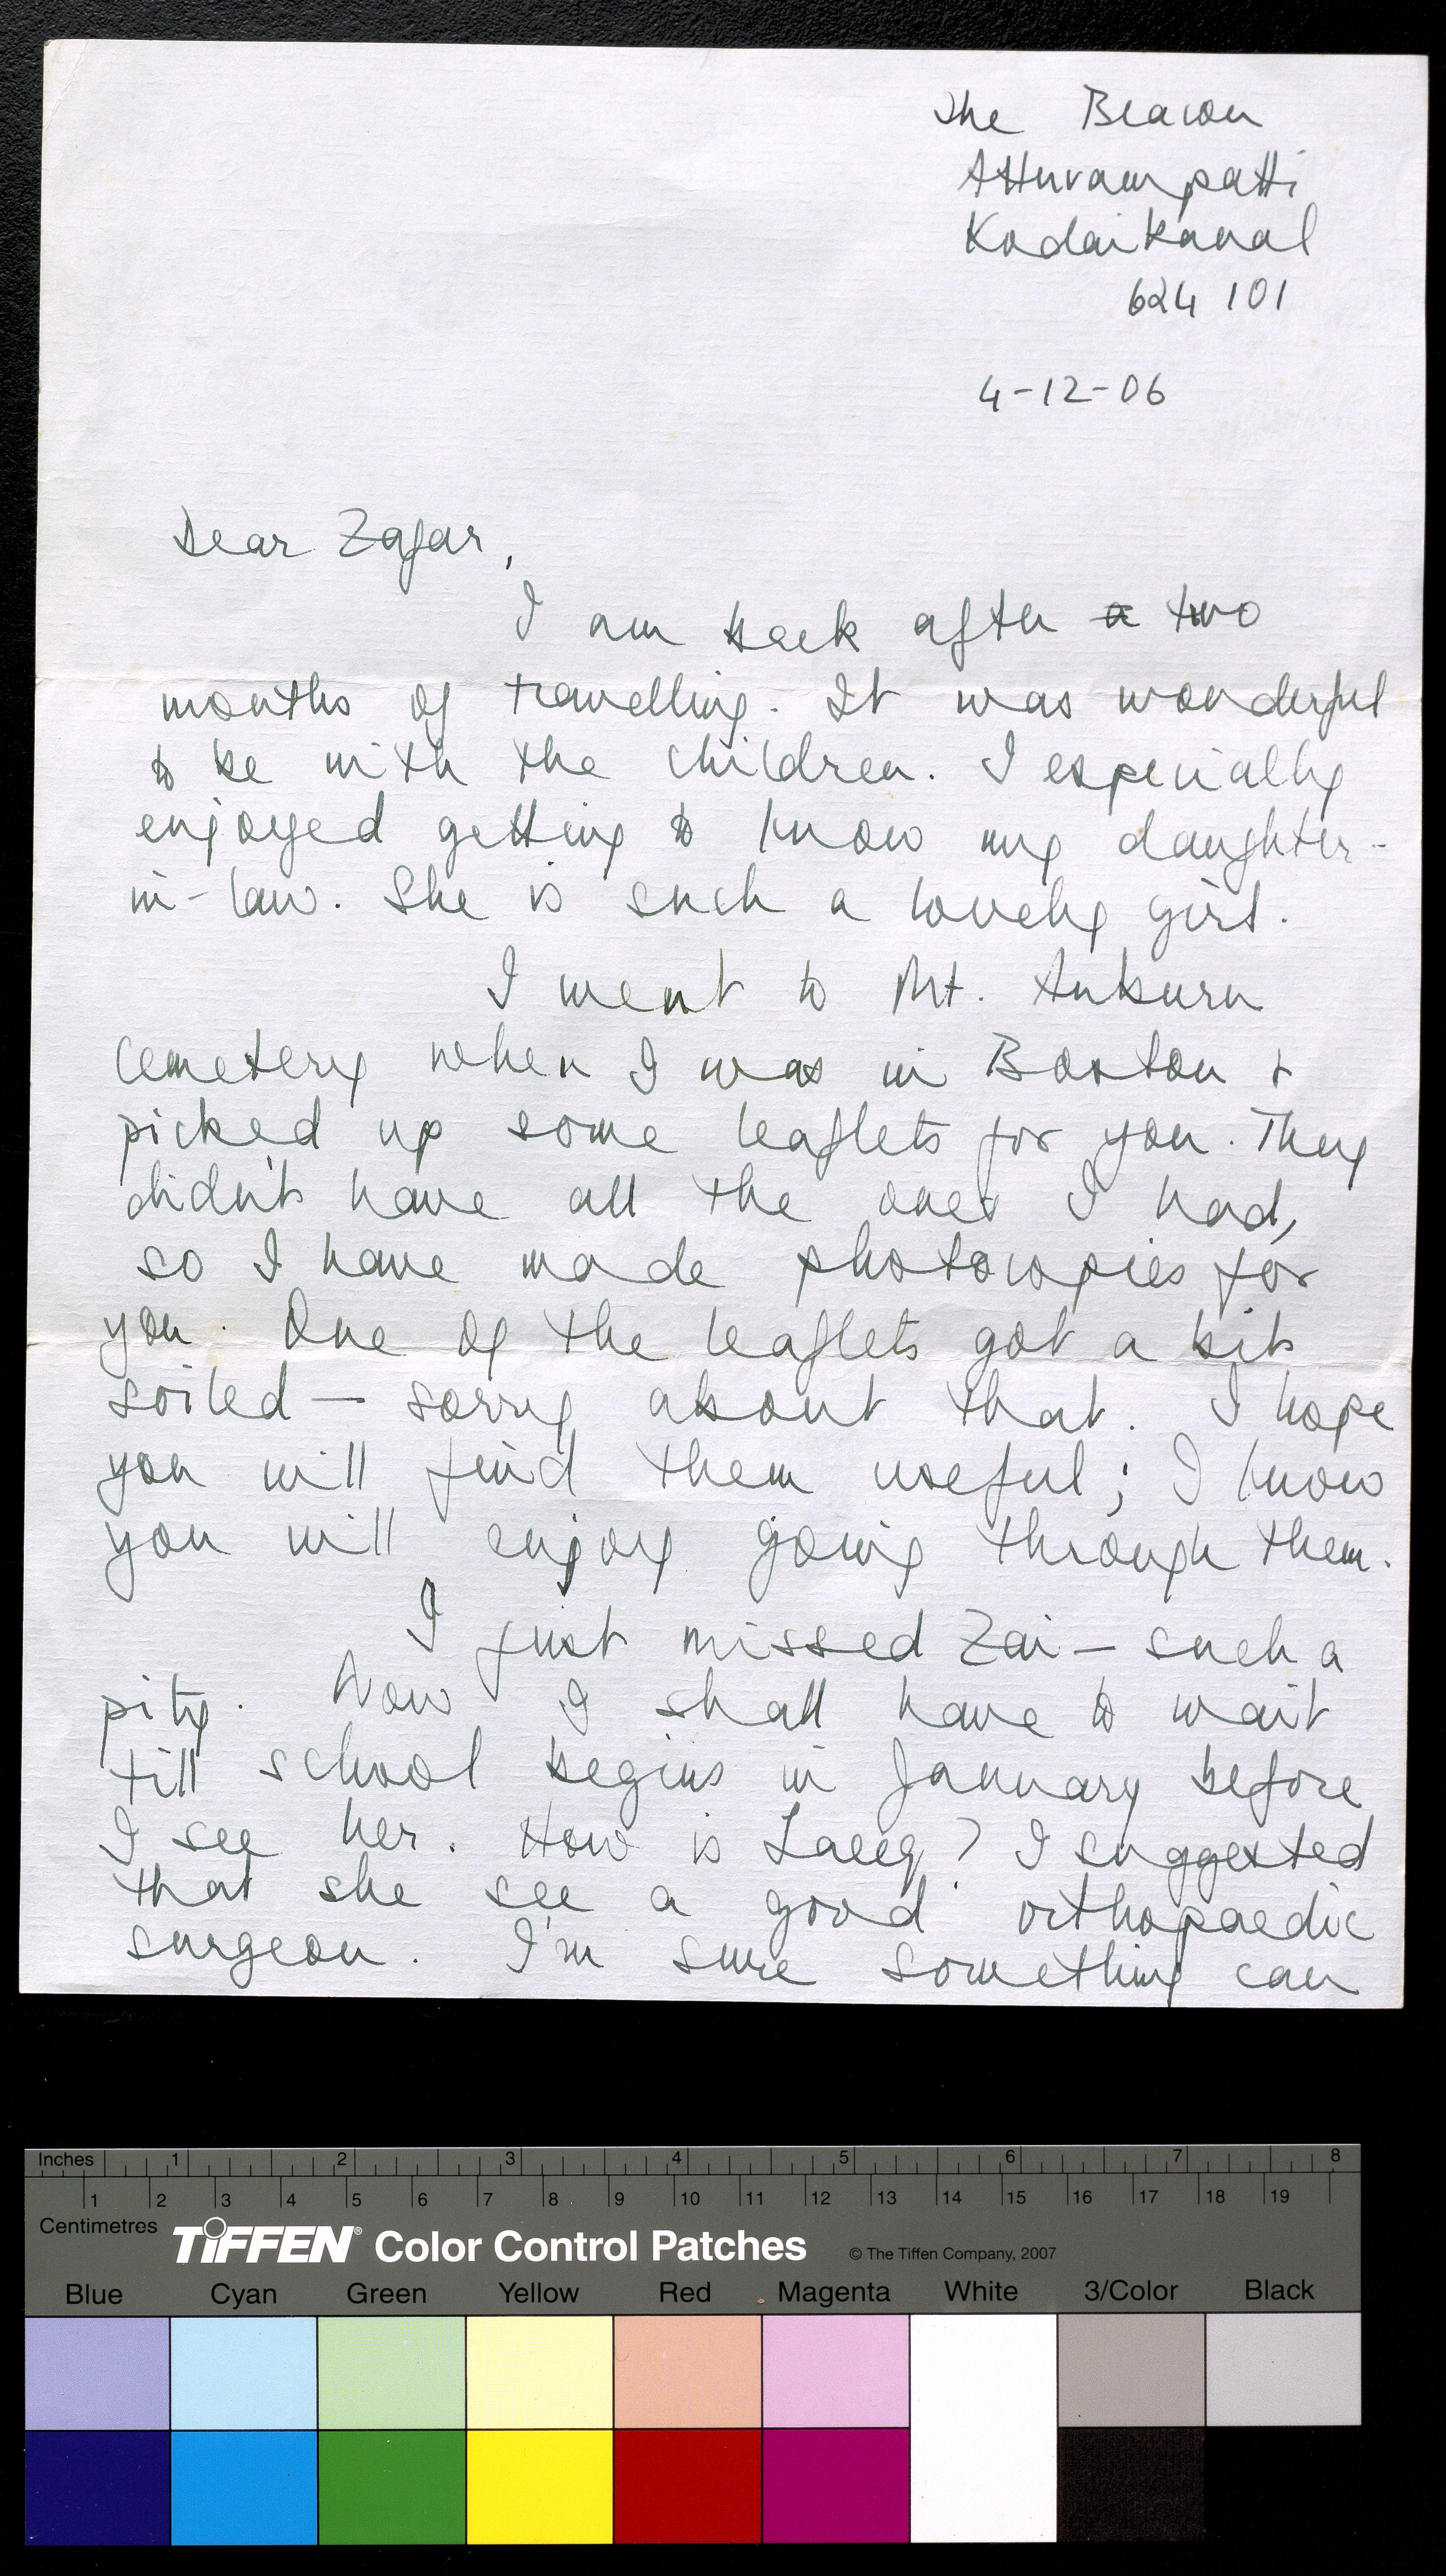 The Beacon
Attuvampatti
Kodaikanal
624 101
4-12-06
Dear Zafar,
I am back after a two
months of travelling. It was wonderful
to be with the children. I especially
enjoyed getting to know my daughter-
in-law. She is such a lovely girl.
I went to Mt. Auburn
Cemetery when I was in Boston &
picked up some leaflets for you. They
didn't have all the ones I had,
so I have made photocopies for
you. One of the leaflets got a bit
soiled — sorry about that. I hope
you will find them useful; I know
you will enjoy going through them.
I just missed Zai — such a
pity. Now I shall have to wait
till school begins in January before
I see her. How is Laeeq? I suggested
that she see a good orthopaedic
surgeon. I'm sure something can
Inches 1 2 3 4 5 6 7 8
1 2 3 4 5 6 7 8 9 10 11 12 13 14 15 16 17 18 19
Centimetres
TIFFEN® Color Control Patches © The Tiffen Company, 2007
Blue Cyan Green Yellow Red Magenta White 3/Color Black